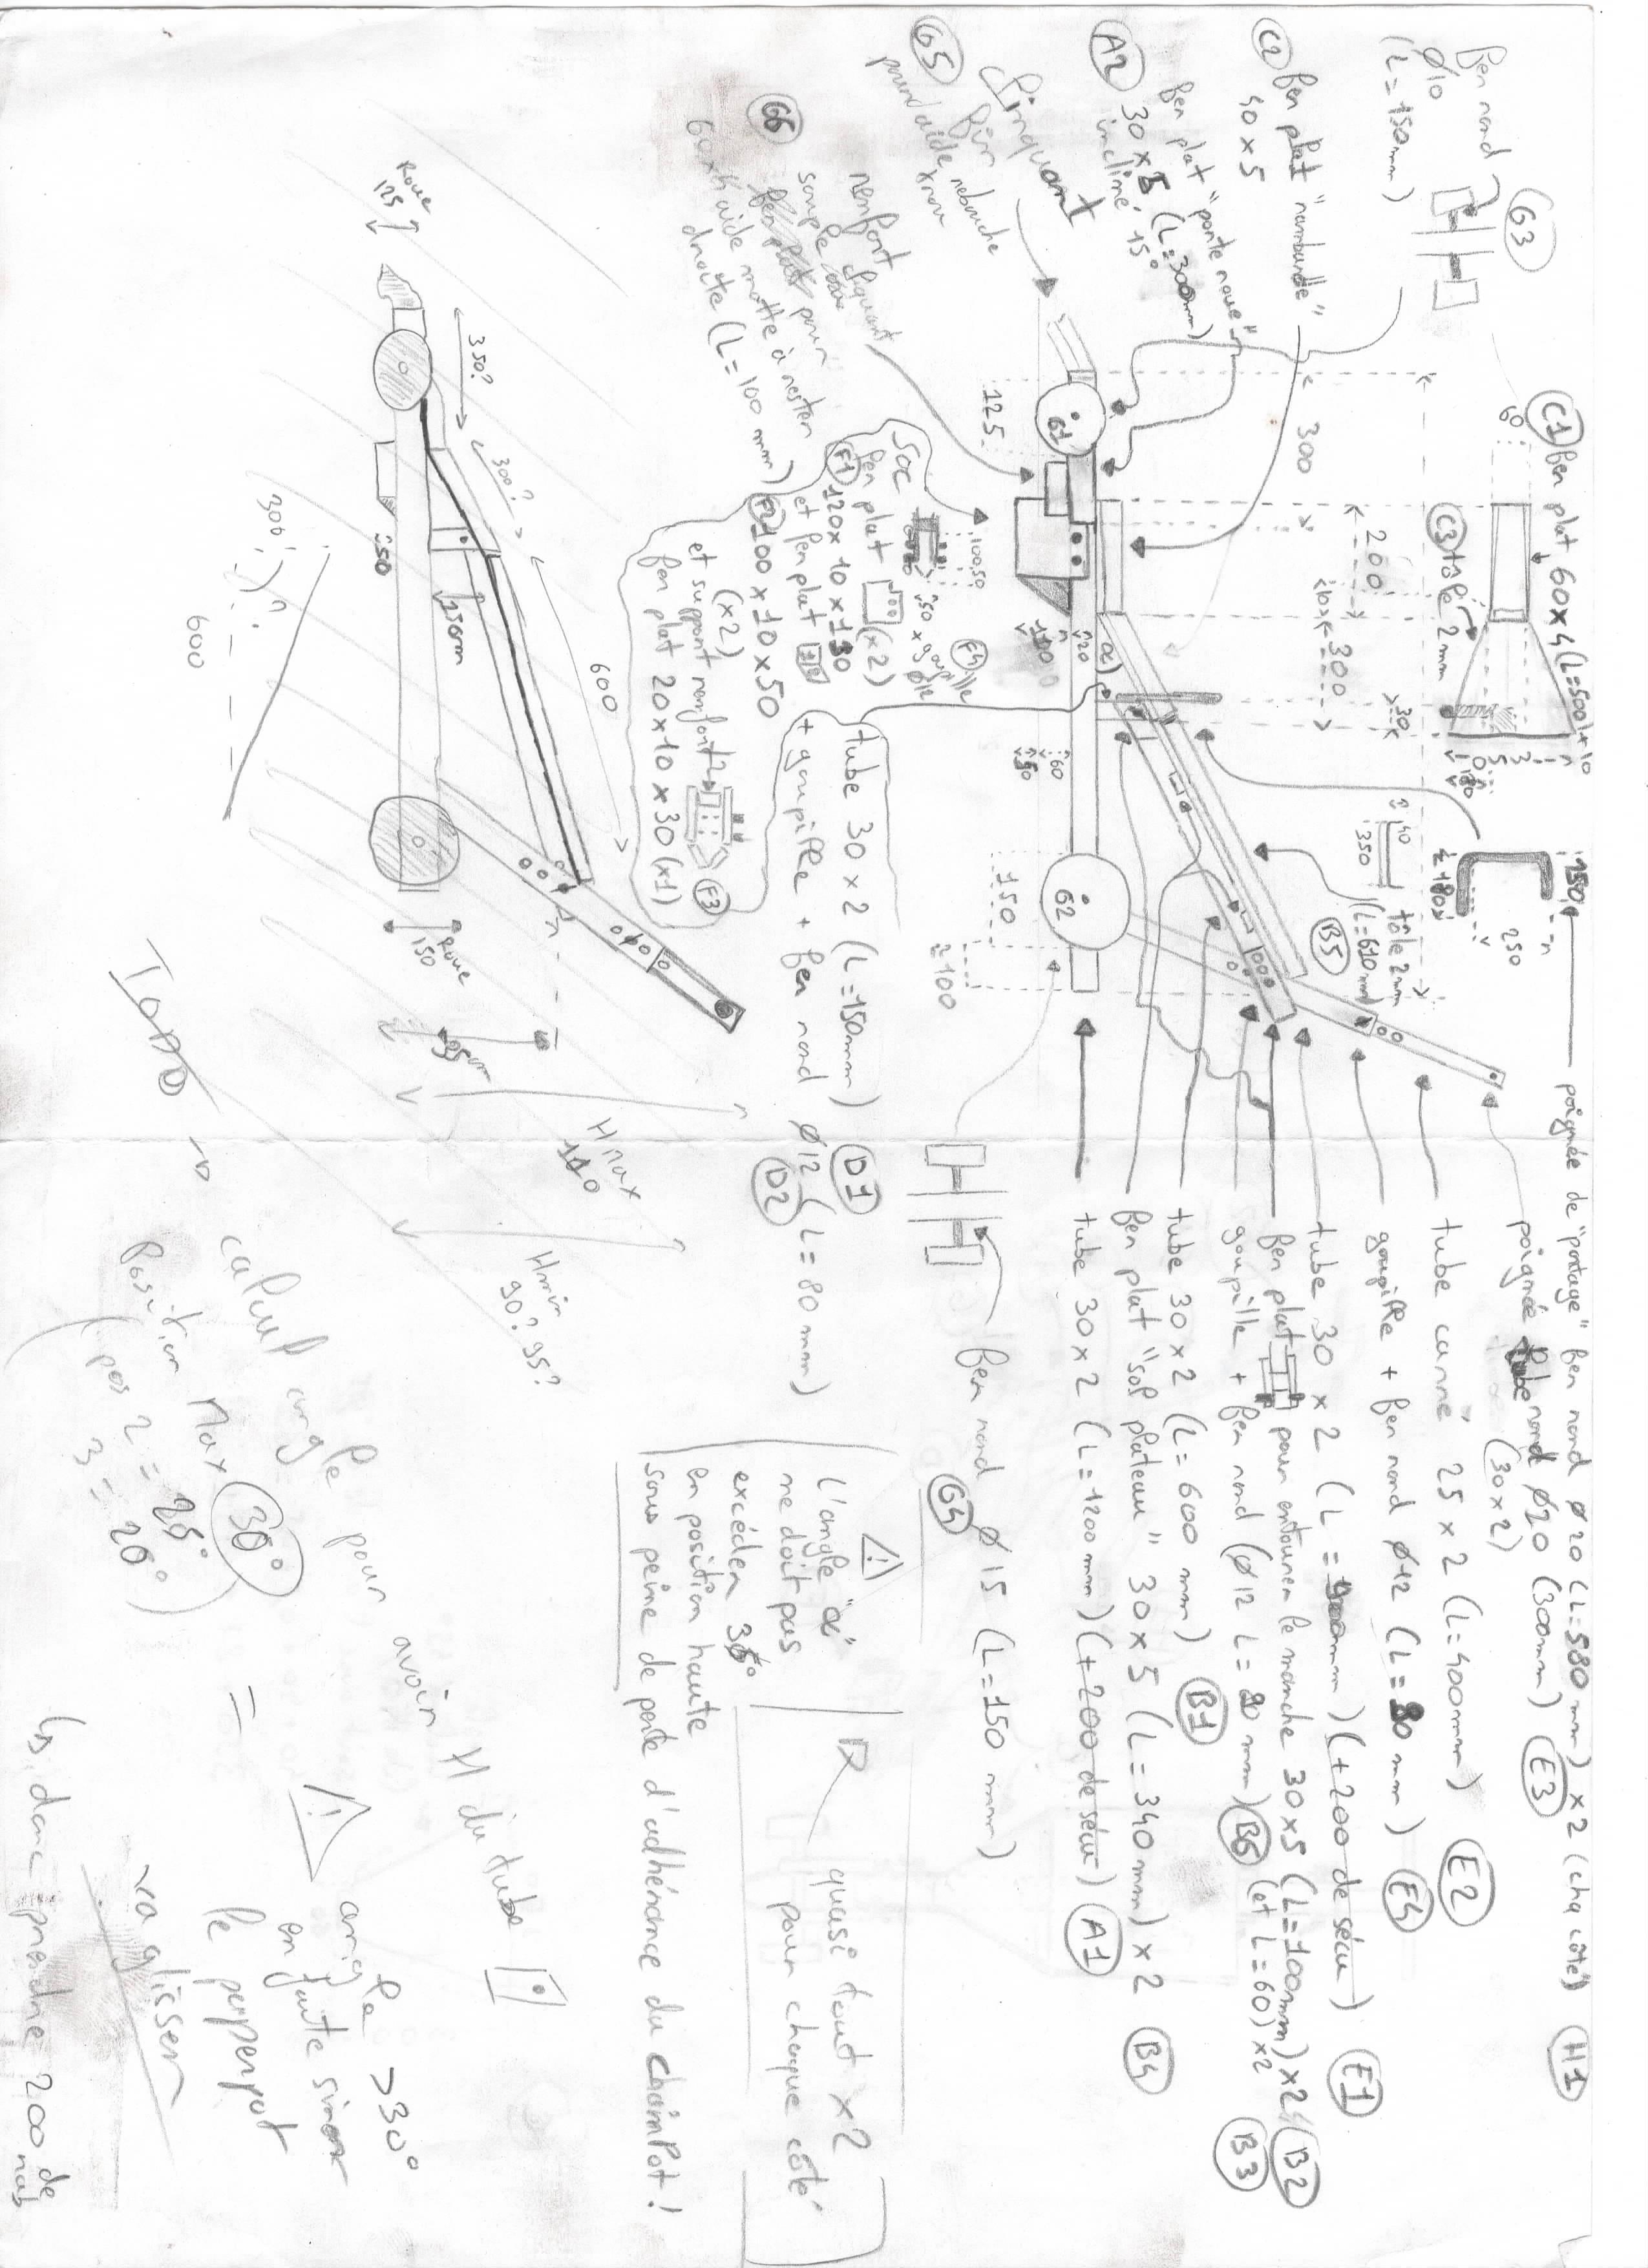 G3
fer rond
ø10
(L=150mm)
C2 fer plat "rambarde"
40 x 5
A2 fer plat "porte roue"
30 x 5 (L=300mm)
incliné 15°
G5
pour aide x roue
G6
renfort
simple
pour
aide motte à rester
droite (L=100 mm)
C1 fer plat 60x4 (L=500)x10
60
C3 tôle 2 mm
150
250
≈ 180
300
200
10
300
30
125
G1
G2
150
≈100
α
120
100
60
50
40
350
tôle 2mm
(L=610mm)
B5
SOC
100 50
F4 goupille
ø12
F1 fer plat
120x10x130 (x2)
et fer plat
F2 100x10x50
(x2)
et support renfort
fer plat 20x10x30 (x1)
F3
poignée de "portage" fer rond ø20 (L=580 mm) x2 (cha côté) H1
poignée rond ø20 (300mm) E3
(30x2)
tube canne 25 x 2 (L=400mm) E2
goupille + fer rond ø12 (L=80 mm) E4
tube 30 x 2 (L=900mm) (+200 de sécu) E1
fer plat pour entourer le manche 30x5 (L=100mm) x2 B2
goupille + fer rond (ø12 L=80 mm) B6 (et L=60) x2 B3
tube 30x2 (L=600 mm) B1
fer plat "sol plateau" 30x5 (L=340mm) x2 B4
tube 30x2 (L=1200mm) (+200 de sécu) A1
G4 fer rond ø15 (L=150 mm)
tube 30x2 (L=150mm) D1
+ goupille + fer rond ø12 (L=80mm)
D2
L'angle "α"
ne doit pas
excéder
en position haute
sous peine de perte d'adhérence du chainPot!
quasi tout x2
pour chaque côté
Roue
125
350?
300?
600
150mm
50
Roue
150
300
?
600
H max
110
H min
90? 95?
TODO
calcul angle pour avoir H du tube
Position Max 30° =
(pos 2 = 25°
3 = 20°)
angle >30°
en faute sinon
le perpet
va glisser
donc prendre 200 de